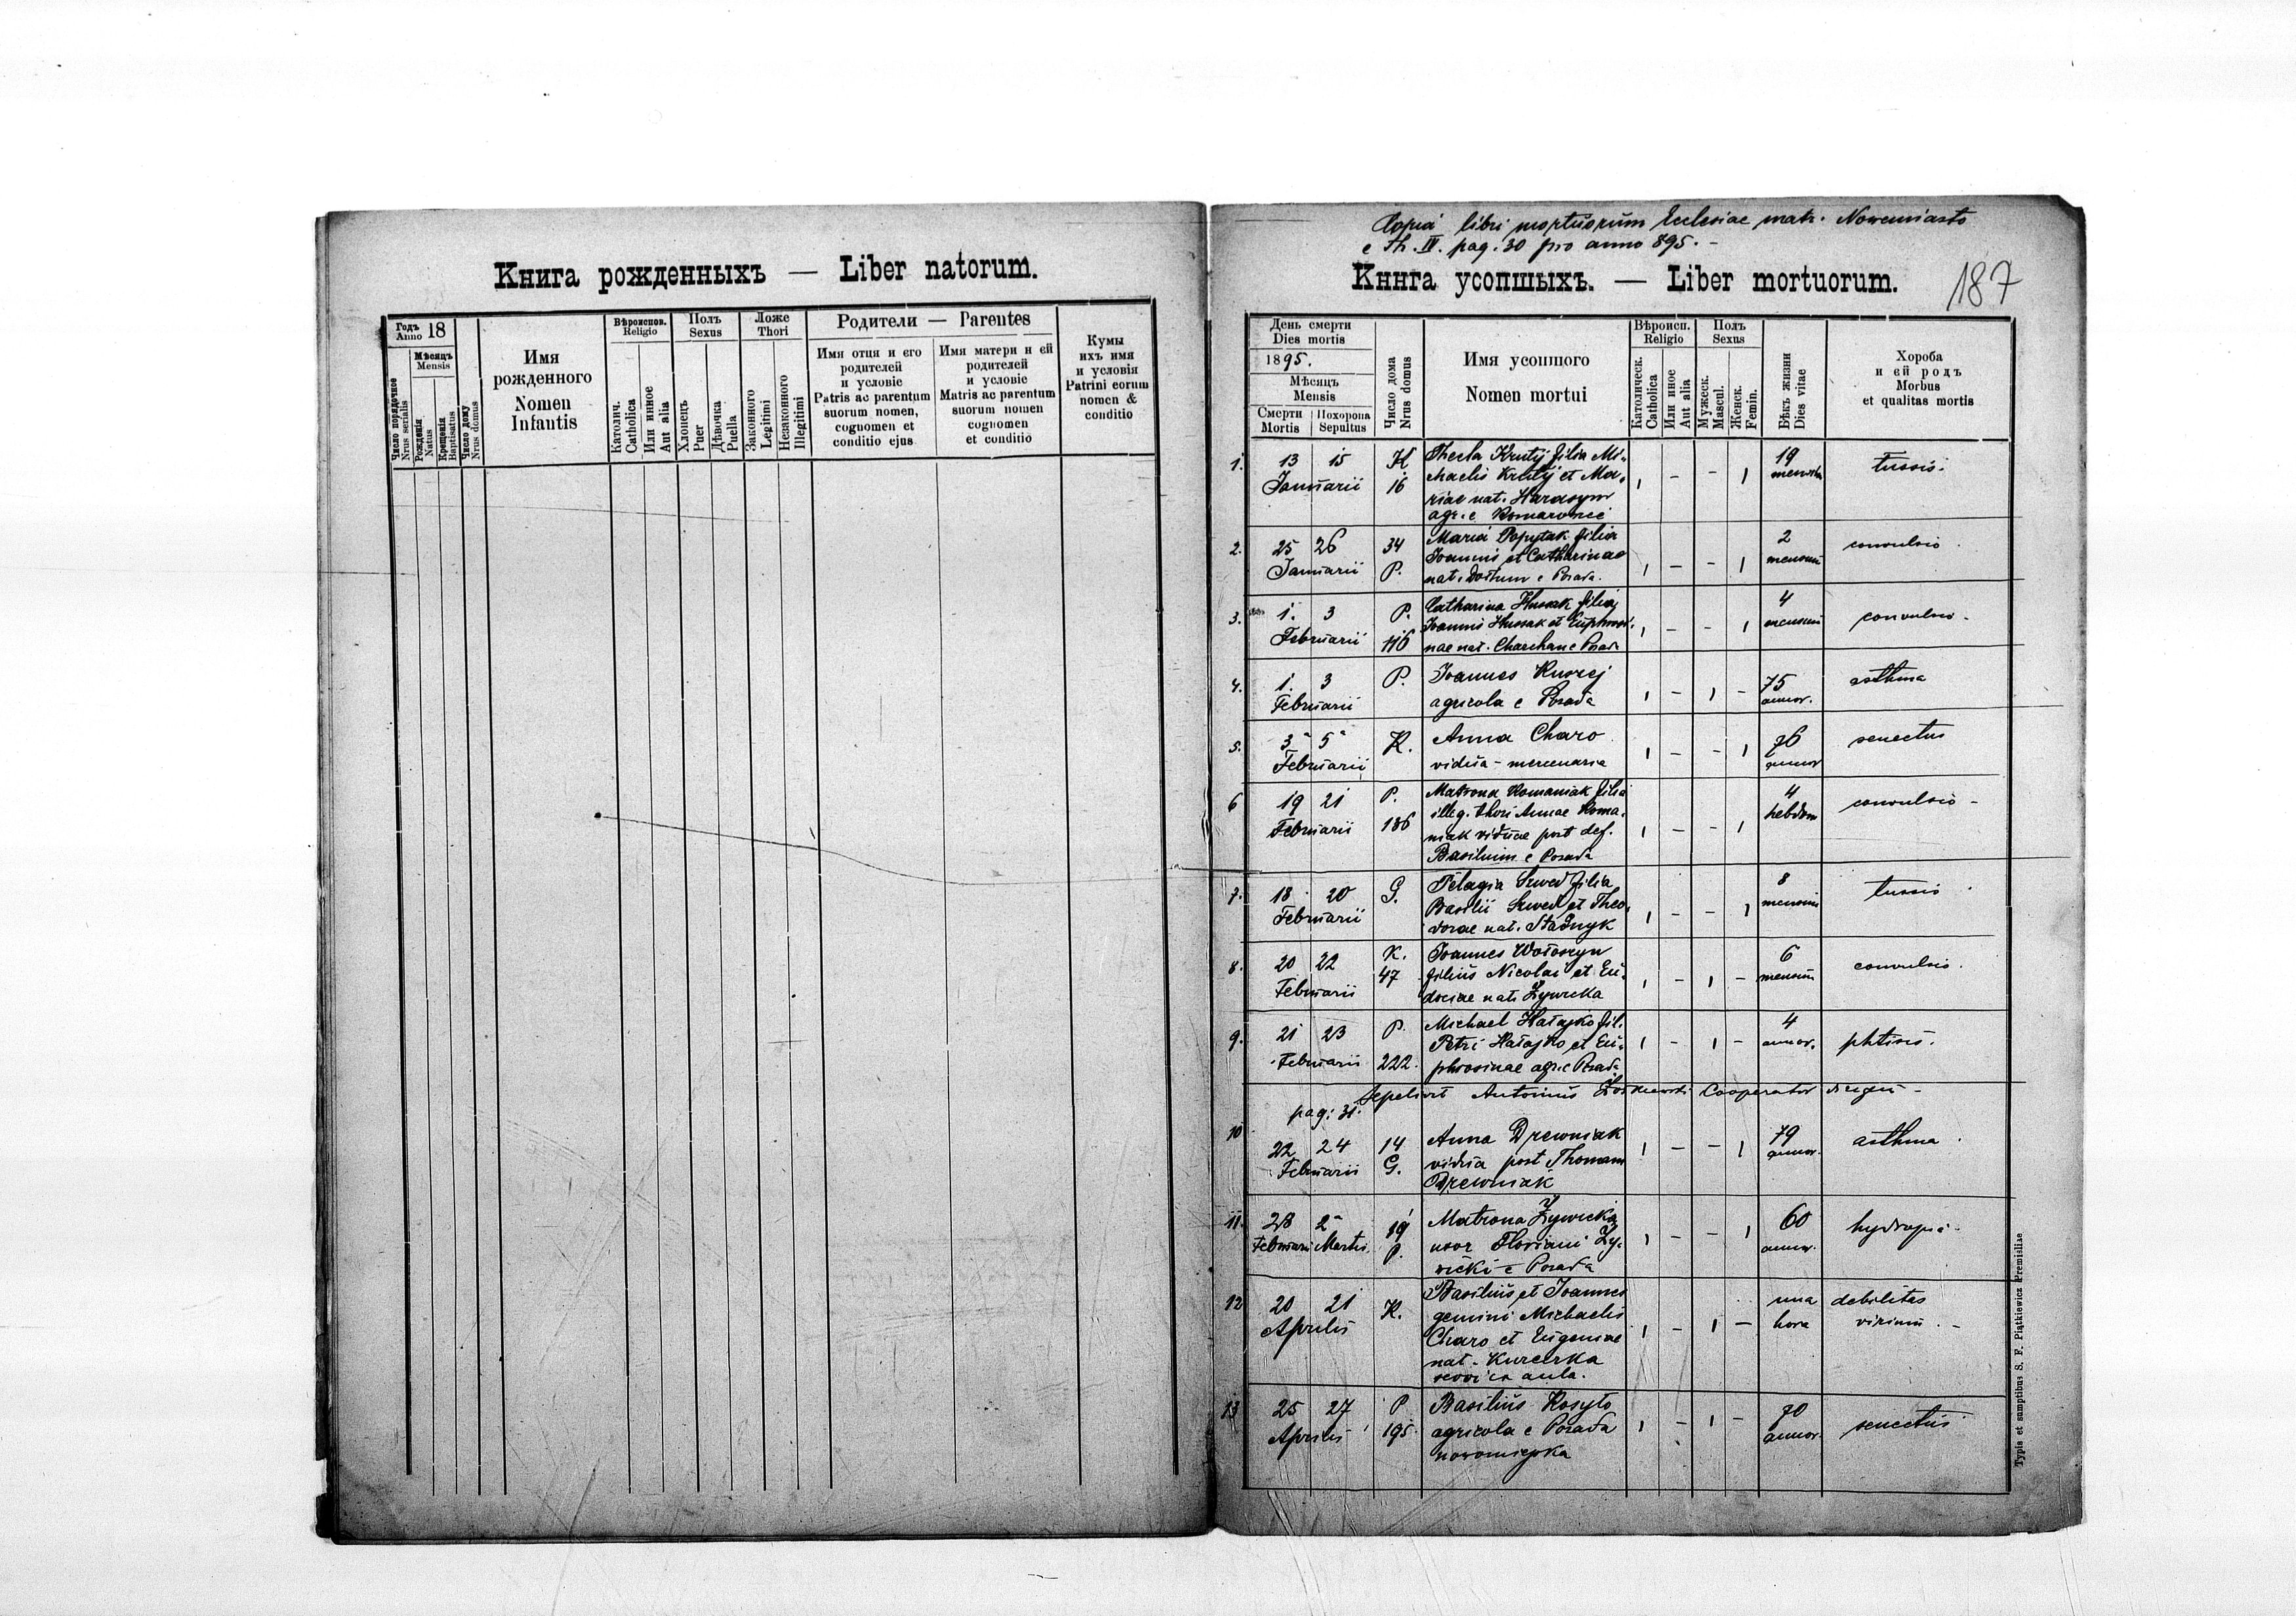 Книга рожденныхъ — Liber natorum.
Годъ Anno 18
Мѣсяцъ Mensis
Число порядочное Nrus serialis
Рожденія Natus
Крещенія Baptisatus
Число дому Nrus domus
Имя рожденного
Nomen Infantis
Вѣроиспов. Religio
Католич. Catholica
Или инное Aut alia
Полъ Sexus
Хлопецъ Puer
Дѣвочка Puella
Ложе Thori
Законного Legitimi
Незаконного Illegitimi
Родители — Parentes
Имя отця и его
родителей
и условіе
Patris ac parentum
suorum nomen,
cognomen et
conditio ejus
Имя матери и ей
родителей
и условіе
Matris ac parentum
suorum nomen
cognomen
et conditio
Кумы
ихъ имя
и условія
Patrini eorum
nomen &
conditio
Copia libri mortuorum Ecclesiae matr. Nowemiasto
e Th. IV. pag. 30 pro anno 895. -
Кннга усопшыхъ. — Liber mortuorum.
187
День смерти
Dies mortis
1895.
Мѣсяцъ
Mensis
Смерти Mortis
Похорона Sepultus
Число дома Nrus domus
Имя усопшого
Nomen mortui
Вѣроисп. Religio
Католическ. Catholica
Или инное Aut alia
Полъ Sexus
Мужеск. Mascul.
Женск. Femin.
Вѣкъ жизни Dies vitae
Хороба
и ей родъ
Morbus
et qualitas mortis
1. 13 15 Januarii K 16
Thecla Krutij filia Mi-
chaelis Krutij et Ma-
riae nat. Harasym
agr. e
19 tussis.
2. 25 26 Januarii 34 P.
Maria Popytak filia
Joannis et Catharinae
nat. e Posada.
2 mensium convulsio
3. 1. 3 Februarii P. 116
Catharina Hussak filia
Joannis Hussak et Euphrosi-
nae nat. Charchan e Posada
4 mensium convulsio -
4. 1. 3 Februarii P.
Joannes
agricola e Posada
75 annor. asthma
5. 3 5 Februarii K.
Anna Charo
vidua - mercenaria
76 annor senectus
6 19 21 Februarii P. 186
Matrona Romaniak filia
illeg. thori Annae Roma-
niak viduae post def.
Basilium e Posada
4 hebdom convulsio -
7. 18 20 Februarii G.
Pelagia Szwed filia
Basilii Szwed et Theo-
dorae nat. Stadnyk
8 mensium tussis
8. 20 22 Februarii K. 47
Joannes Wołoszyn
filius Nicolai et Eu-
dociae nat. Żywicka
6 mensium convulsio.
9. 21 23 Februarii P. 222.
Michael Hałajko fil.
Petri Hałajko et Eu-
phrosinae agr. e Posada
4 annor. phtisis.
Sepelivit Antonius Cooperator
pag: 31.
10 22 24 Februarii 14 G.
Anna Drewniak
vidua post Thomam
Drewniak
79 annor. asthma
11. 28 2 Februarii Martii 19 P.
Matrona Żywicka
uxor Floriani Ży-
wicki e Posada
60 annor. hydropia -
12 20 21 Aprilis K.
Basilius et Joannes
gemini Michaelis
Charo et Eugeniae
nat.
aula.
una hora debilitas virium. -
13 25 27 Aprilis P 195.
Basilius Kosyło
agricola e Posada
nowomiejska
70 annor. senectus
Typis et sumptibus S. F. Piątkiewicz Premisliae